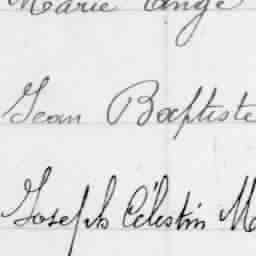 Marie Ange
Jean Baptiste
Joseph Célestin M